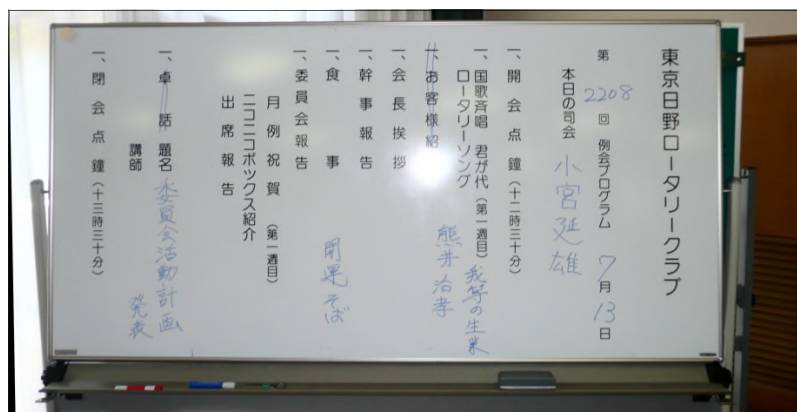 東京日野ロータリークラブ
第 2208 回 例会プログラム 7月13日
本日の司会 小宮延雄
一、開会点鐘(十二時三十分)
一、国歌斉唱 君が代(第一週目)
ロータリーソング 我等の生業
熊井治孝
一、お客様紹介
一、会長挨拶
一、幹事報告
一、食事 開運そば
一、委員会報告
月例祝賀(第一週目)
ニコニコボックス紹介
出席報告
一、卓話 題名 委員会活動計画
講師 発表
一、閉会点鐘(十三時三十分)